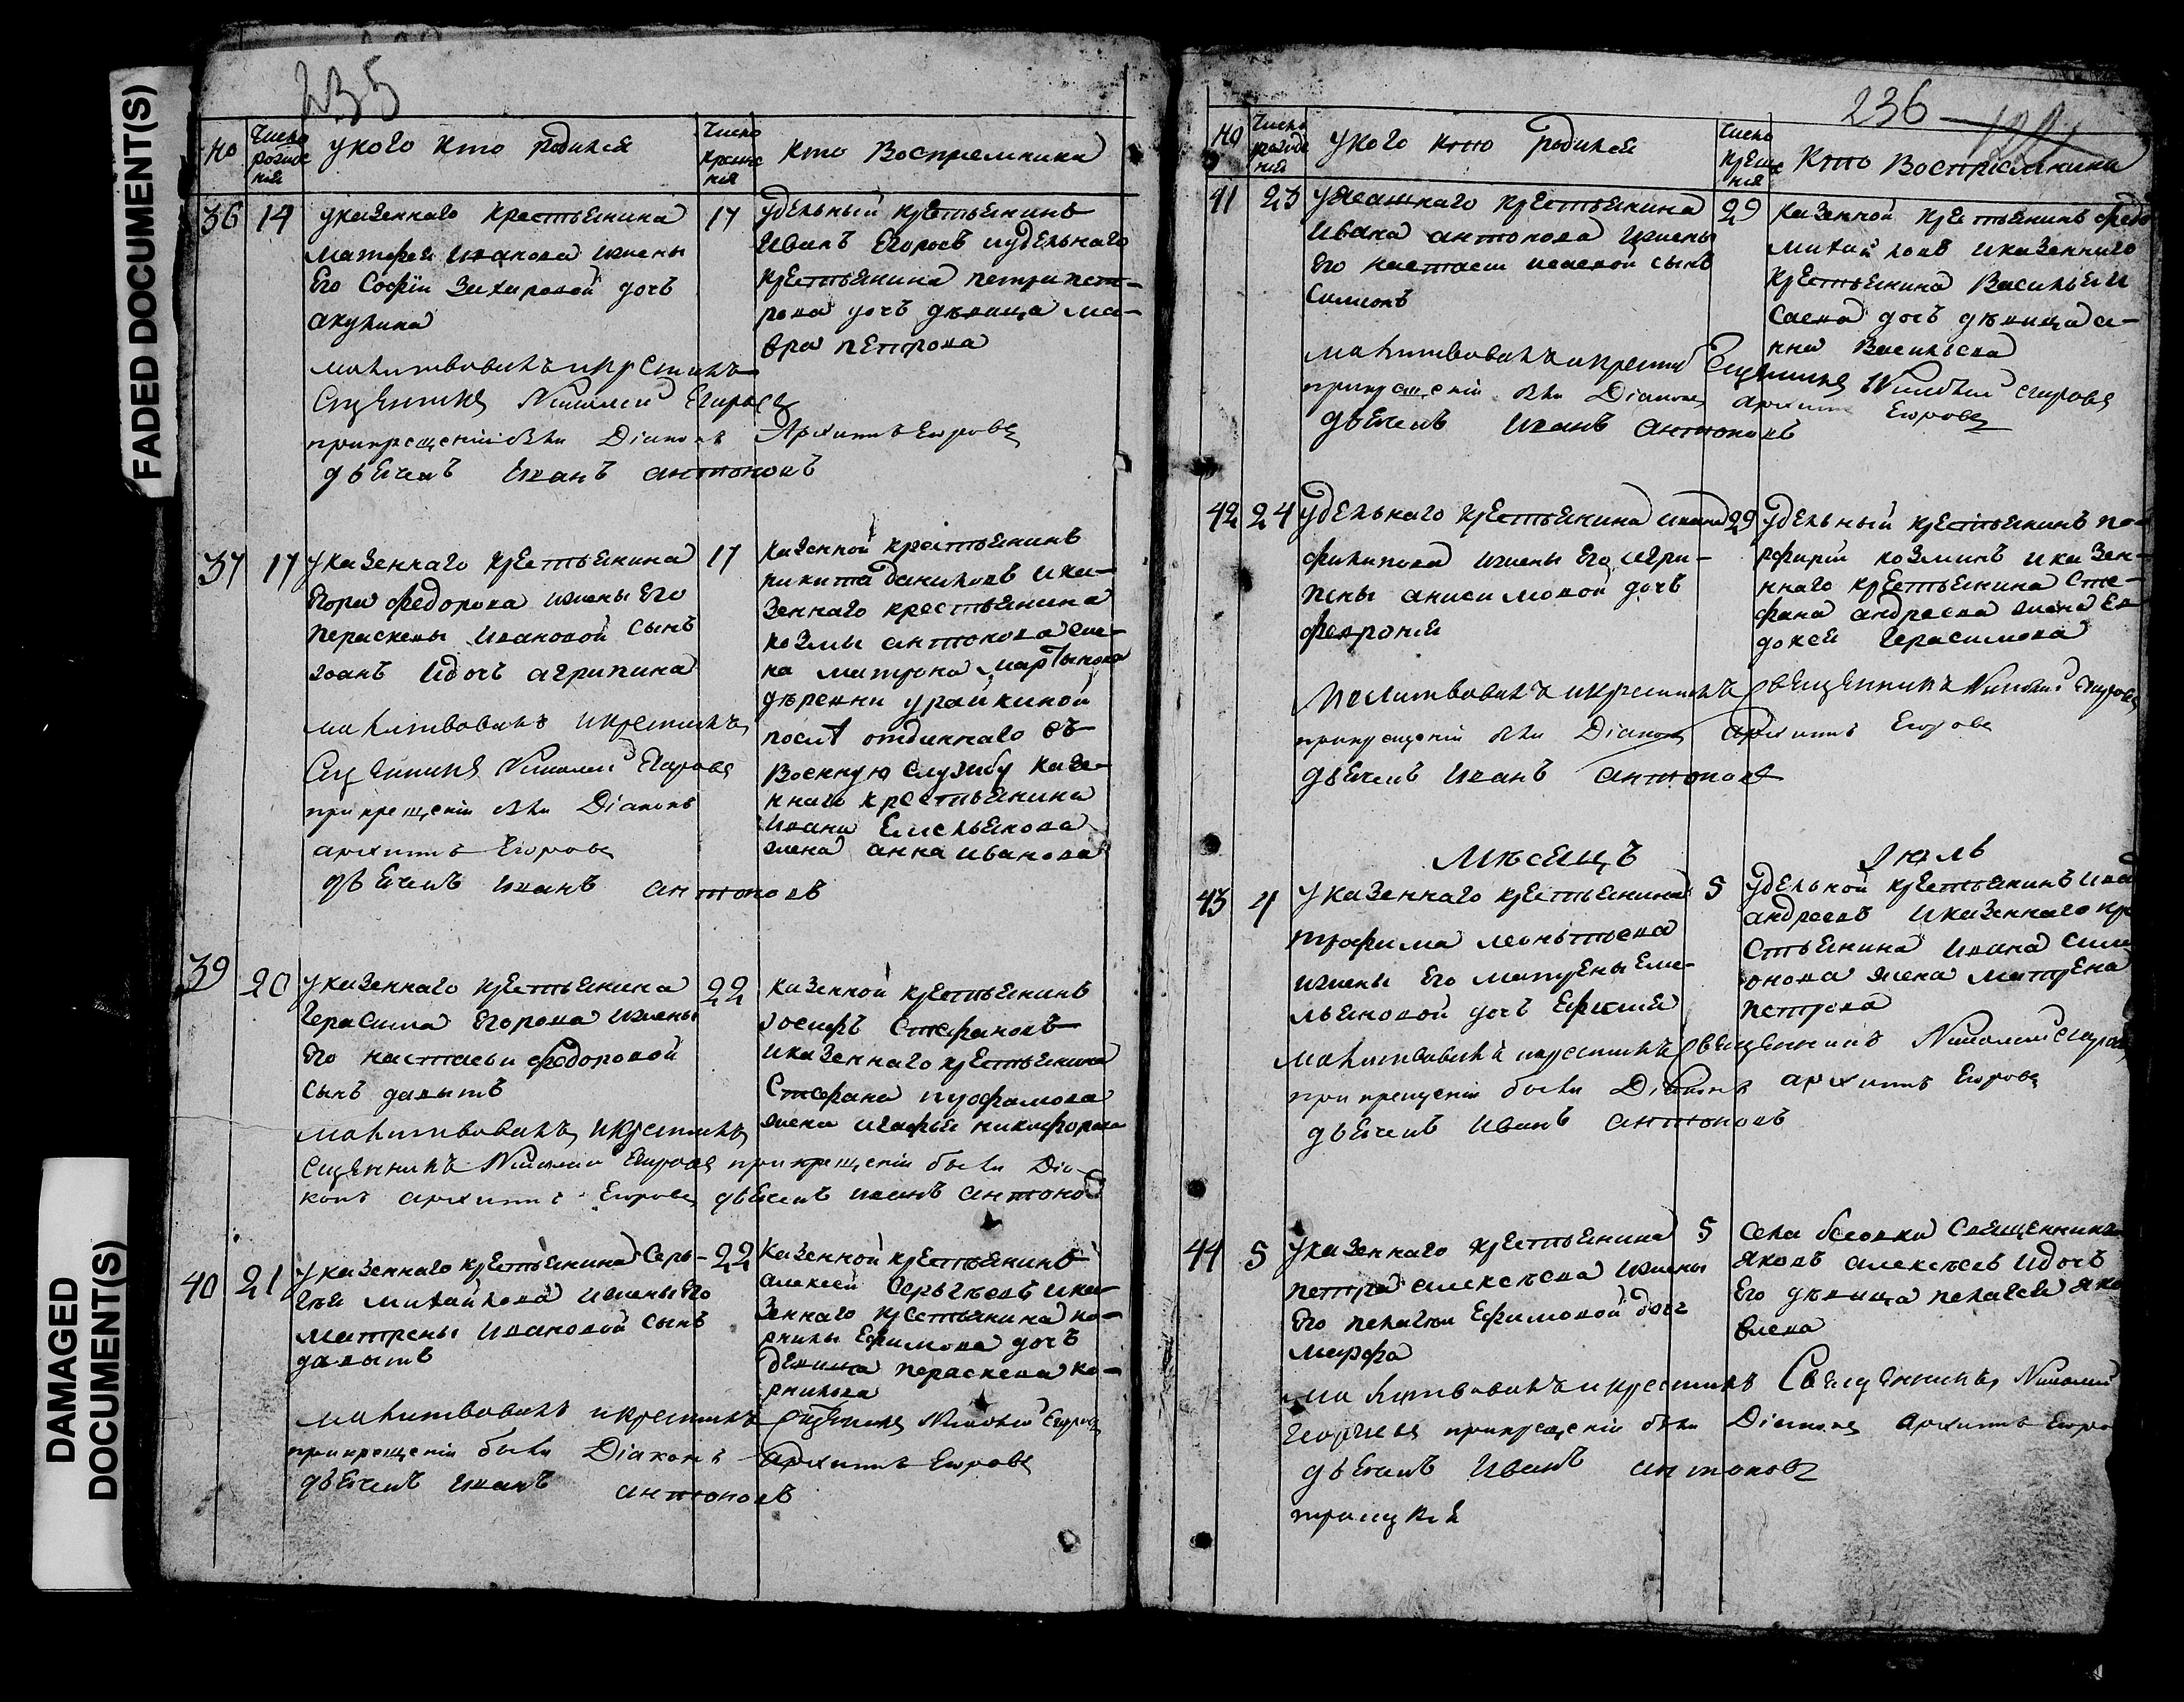 FADED DOCUMENT(S)
DAMAGED
DOCUMENT(S)
235
№
Число рожде нія
у кого кто родился
Число креще нія
кто Воспремники
36 14 17
у казеннаго крестьянина
матфея иванова ижены
Его Софіи Захаровой дочь
акулина
молитвовалъ и крестилъ
Священникъ Николай Егоровъ
при крещеніи были Діаконъ Архипъ Егоровъ
дьячекъ Иванъ антоновъ
удельный крестьянинъ
Иванъ Егоровъ и удельнаго
крестьянина петра пет-
рова дочь девица ма-
вра петрова
37 17 17
у казеннаго крестьянина
Егора федорова ижены Его
параскевы ивановой сынъ
іоанъ и дочь агрипина
молитвовалъ и крестилъ
Священникъ Николай Егоровъ
при крещеніи были Діаконъ
архипъ Егоровъ
дьячекъ иванъ антоновъ
казенной крестьянинъ
никита даниловъ и ка-
зеннаго крестьянина
козмы антонова же-
на матрона мартынова
деревни урайкиной
после отданнаго въ
военную службу казе-
ннаго крестьянина
ивана Емельянова
жена анна иванова
39 20 22
у казеннаго крестьянина
Герасима Егорова ижены
Его настасьи федоровой
сынъ давытъ
молитвовалъ и крестилъ
Священникъ Николай Егоровъ при крещеніи были Діа-
конъ архипъ Егоровъ дьячекъ иванъ антонов
казенной крестьянинъ
іосифъ Стефановъ
и казеннаго крестьянина
Стефана
жена агафья никифорова
40 21 22
у казеннаго крестьянина Сер-
гея михайлова ижены Его
матрены ивановой сынъ
давытъ
молитвовалъ и крестилъ Священникъ Николай Егоровъ
при крещеніи были Діаконъ Архипъ Егоровъ
дьячекъ иванъ антоновъ
казенной крестьянинъ
алексей Сергеевъ и ка-
зеннаго крестьянина ко-
рнилы Ефимова дочь
девица параскева ко-
рнилова
236
№
Число рожде нія
у кого кто родился
Число креще нія
Кто Воспріемники
41 23 29
крестьянина
ивана антонова ижены
Его настасьи исаевой сынъ
Симионъ
молитвовалъ и крестилъ Священникъ Николай Егоровъ
при крещеніи были Діаконъ архипъ Егоровъ
дьячекъ иванъ антоновъ
казенной крестьянинъ федо
михайловъ и казеннаго
крестьянина Василья и
саева дочь девица а-
нна Васильева
42 24 29
удельнаго крестьянина ивана
филипова ижены Его агри-
пены анисимовой дочь
феврония
молитвовалъ и крестилъ Священникъ Николай Егоровъ
при крещеніи были Діаконъ архипъ Егоровъ
дьячекъ иванъ антоновъ
удельный крестьянинъ по-
рфирій козминъ и казен-
ннаго крестьянина Сте-
фана андреева жена Ев
докея Герасимова
Месяцъ Іюль
43 4 5
у казеннаго крестьянина
трофима леонтьева
ижены Его матрены Еме-
льяновой дочь Ефимия
молитвовалъ и крестилъ Священникъ Николай Егоров
при крещеніи были Діаконъ архипъ Егоровъ
дьячекъ иванъ антоновъ
удельной крестьянинъ ива
андреевъ и казеннаго кре
стьянина ивана Сими
онова жена матрена
петрова
44 5 5
у казеннаго крестьянина
петра алексеева ижены
Его пелагеи Ефимовой дочь
марфа
молитвовалъ и крестилъ Священникъ Николай
Георгіевъ при крещеніи были Діаконъ архипъ Егоро
дьячекъ иванъ антоновъ
Села беловки Священникъ
яковъ алексеевъ и дочь
Его девица пелагея яко
влева